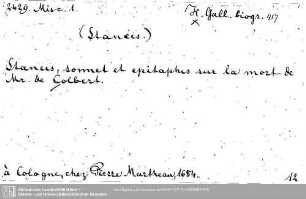 2429. Misc. 1.
H. Gall. biogr. 917
(Stances.)
Stances, sonnet et epitaphes sur la mort de
Mr. de Colbert.
à Cologne, chez Pierre Marteau, 1684.
12
Sächsische Landesbibliothek -
Staats- und Universitätsbibliothek Dresden